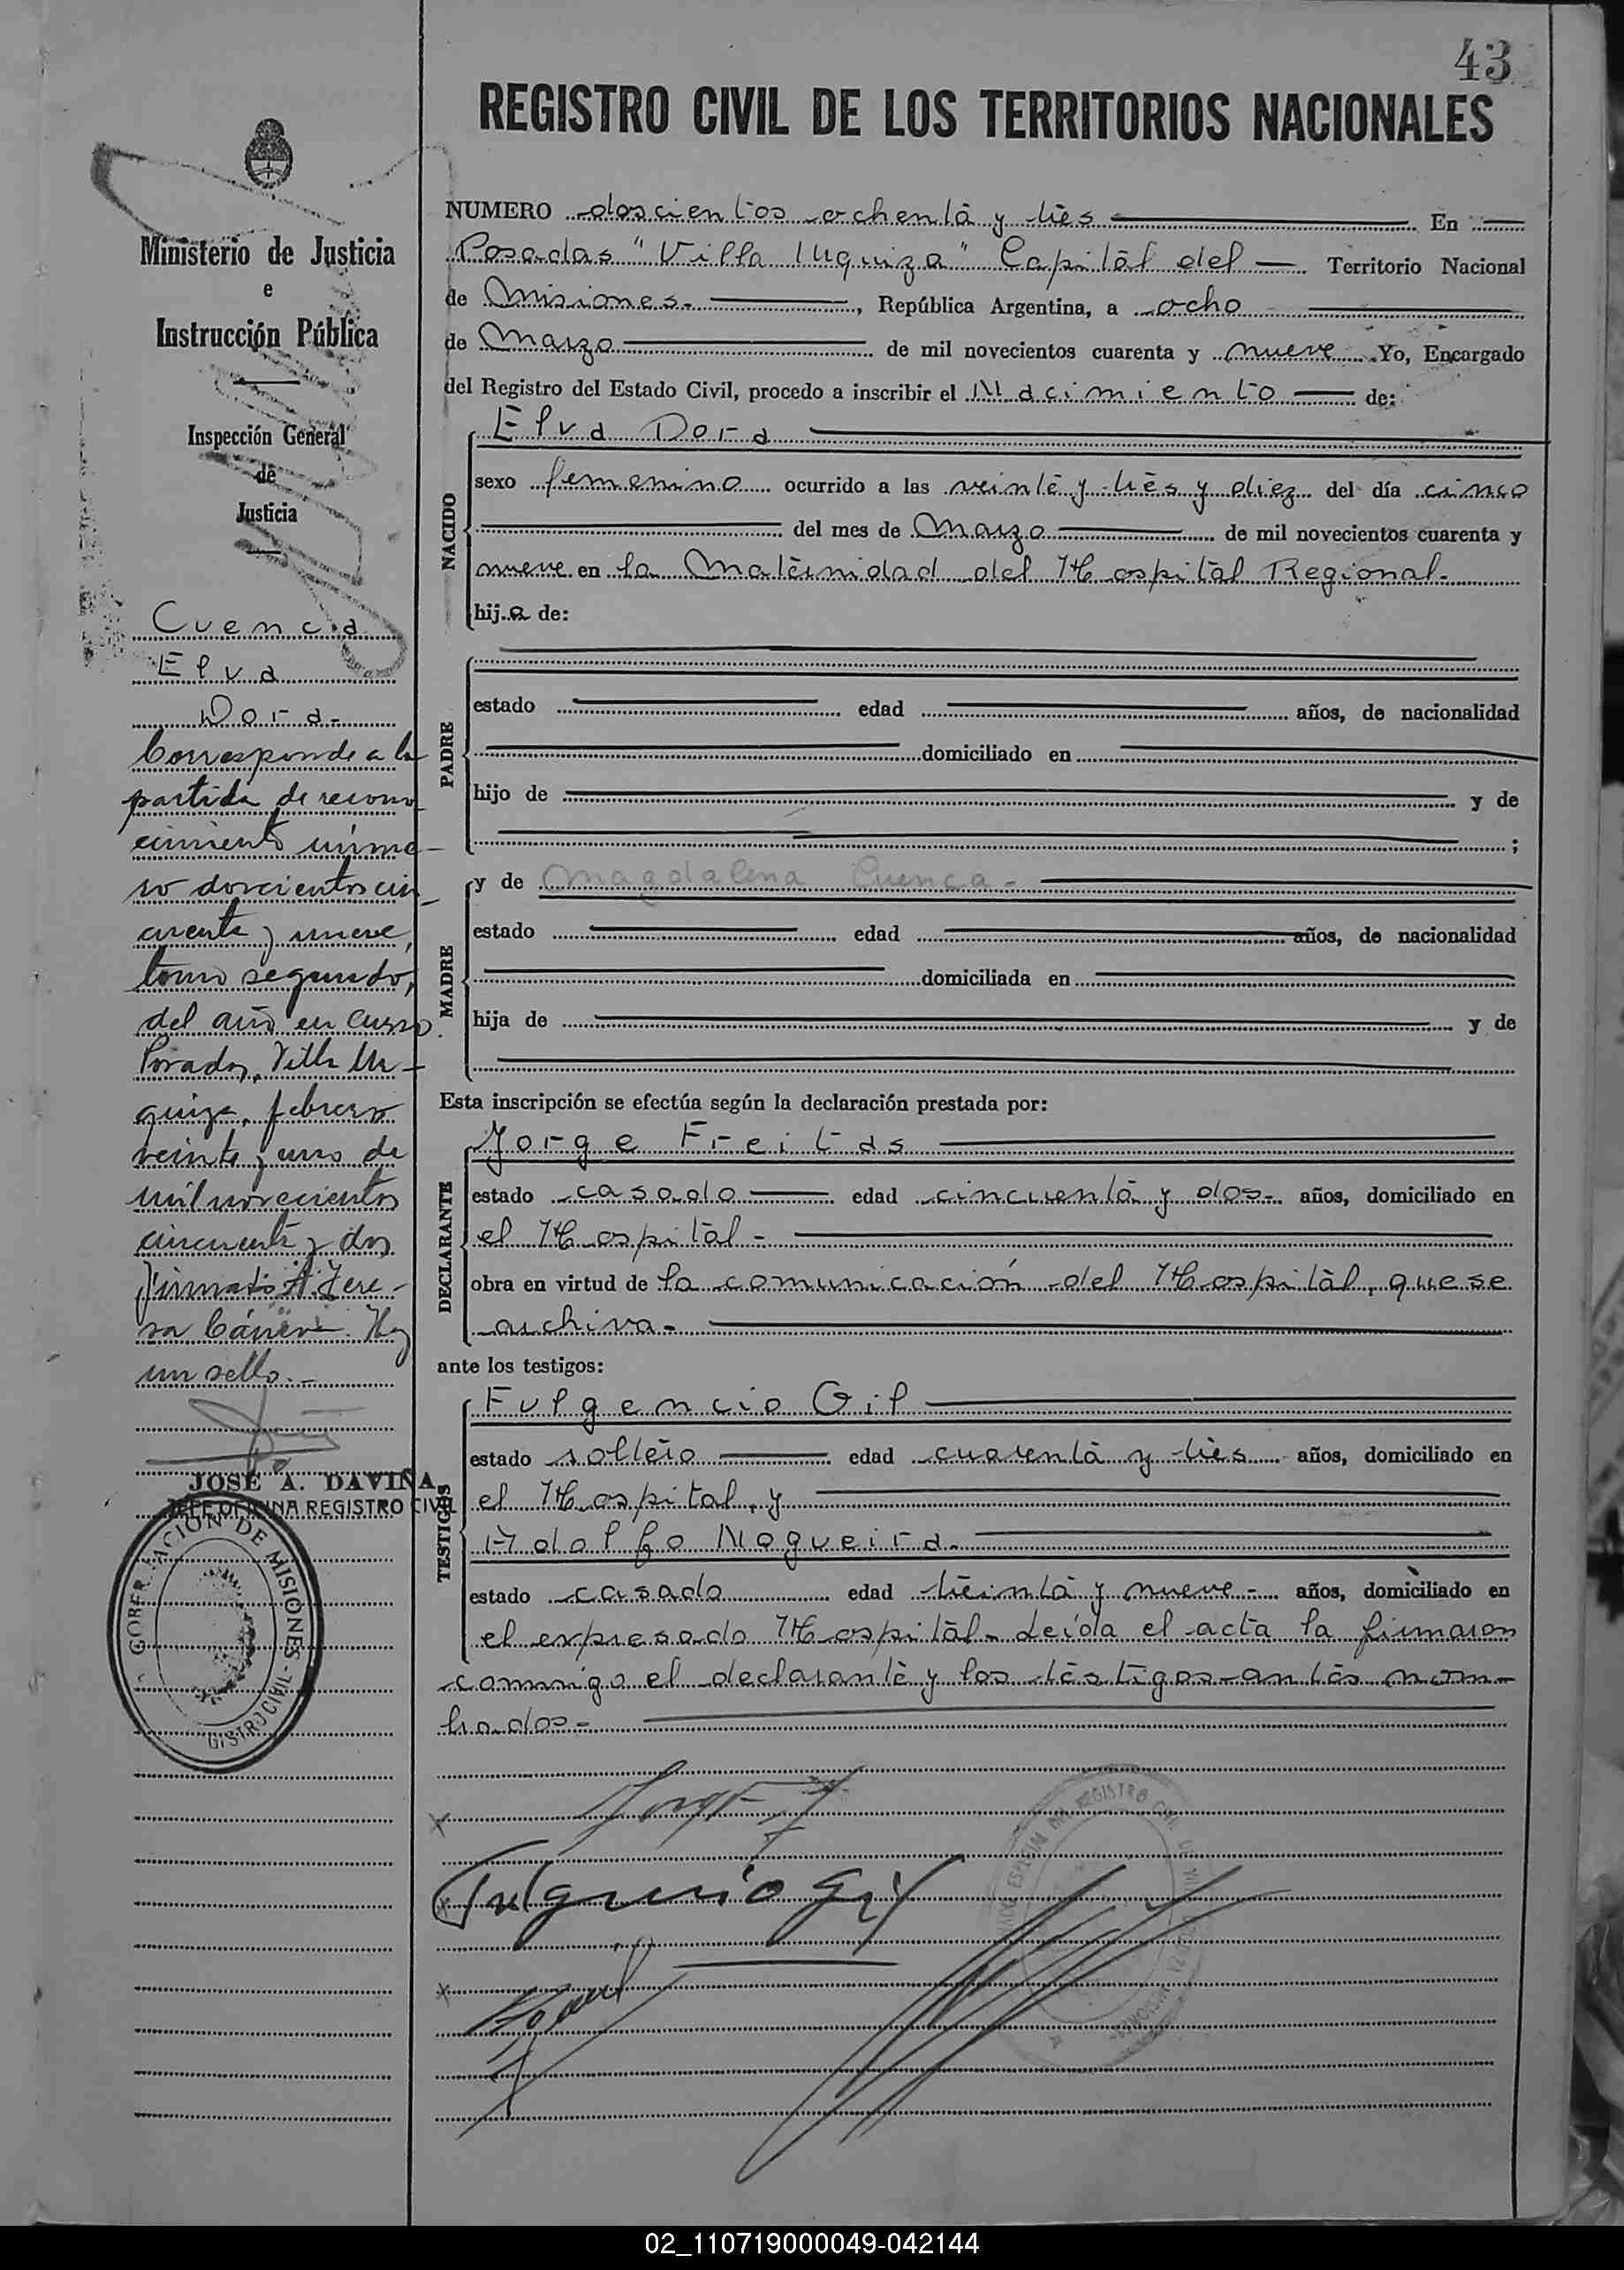 43
REGISTRO CIVIL DE LOS TERRITORIOS NACIONALES
NUMERO doscientos ochenta y tres En
Posadas "Villa Urquiza" Capital del Territorio Nacional
de Misiones. , República Argentina, a ocho
de Marzo de mil novecientos cuarenta y nueve Yo, Encargado
del Registro del Estado Civil, procedo a inscribir el Nacimiento de:
NACIDO
Elva Dora
sexo femenino ocurrido a las veinte y tres y diez del día cinco
del mes de Marzo de mil novecientos cuarenta y
nueve en la Maternidad del Hospital Regional.
hija de:
PADRE
estado edad años, de nacionalidad
domiciliado en
hijo de y de
;
MADRE
y de Magdalena Cuenca -
estado edad años, de nacionalidad
domiciliada en
hija de y de
Esta inscripción se efectúa según la declaración prestada por:
DECLARANTE
Jorge Freitas
estado casado edad cincuenta y dos- años, domiciliado en
el Hospital -
obra en virtud de la comunicación del Hospital, que se
archiva-
ante los testigos:
TESTIGOS
Fulgencio Gil
estado soltero edad cuarenta y tres años, domiciliado en
el Hospital, y
Adolfo Nogueira.
estado casado edad treinta y nueve - años, domiciliado en
el expresado Hospital- Leída el acta la firmaron
conmigo el declarante y los testigos antes nom-
brados-
Jorge F
Fulgencio Gil
Ministerio de Justicia
e
Instrucción Pública
Inspección General
de
Justicia
Cuenca
Elva
Dora-
Corresponde a la
partida de recono
cimiento núme-
ro doscientos cin-
cuenta y nueve,
tomo segundo,
del año en curso.
Posadas, Villa Ur-
quiza, febrero
veinte y uno de
mil novecientos
cincuenta y dos
firmado A. Tere-
sa Hay
un sello.-
JOSE A. DAVIÑA
JEFE OFICINA REGISTRO CIVIL
GOBERNACION DE MISIONES
REGISTRO CIVIL DE MISIONES
02_110719000049-042144